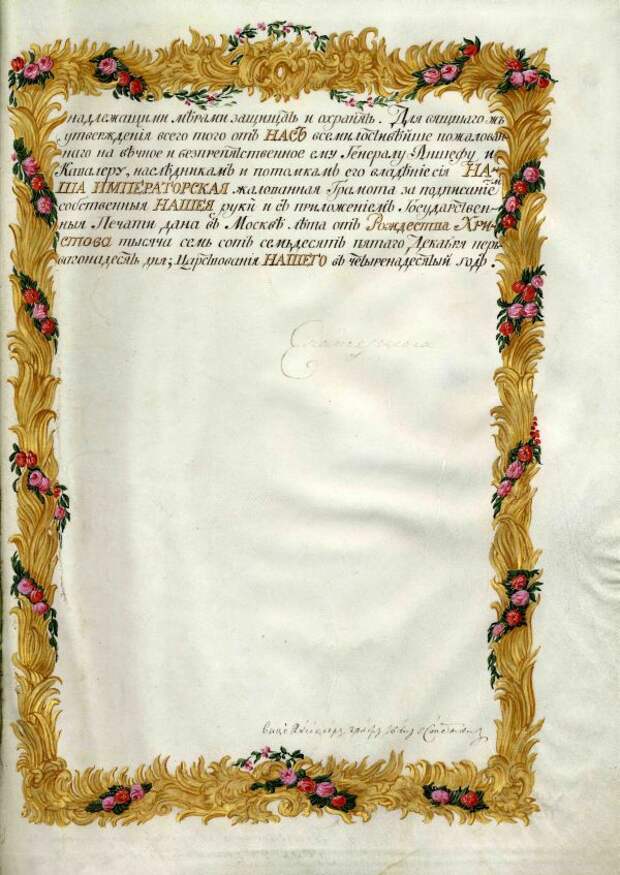 надлежащими мѣрами защищать и охранять. Для вящшаго жъ
утвержденія всего того отъ НАСЪ всемилостивѣйше пожалован-
наго на вѣчное и безпрепятственное ему Генералу Аншефу и
Кавалеру, наслѣдникамъ и потомкамъ его владѣніе сія НА-
ША ИМПЕРАТОРСКАЯ жалованная Грамота за подписаніемъ
собственныя НАШЕЯ руки и съ приложеніемъ Государствен-
ныя Печати дана въ Москвѣ лѣта отъ Рождества Хри-
стова тысяча семь сотъ семьдесятъ пятаго Декабря пер-
вагонадесять дня; Царствованія НАШЕГО въ четыренадесятый годъ.
Екатерина
Вице Канцлеръ графъ Иванъ Остерманъ